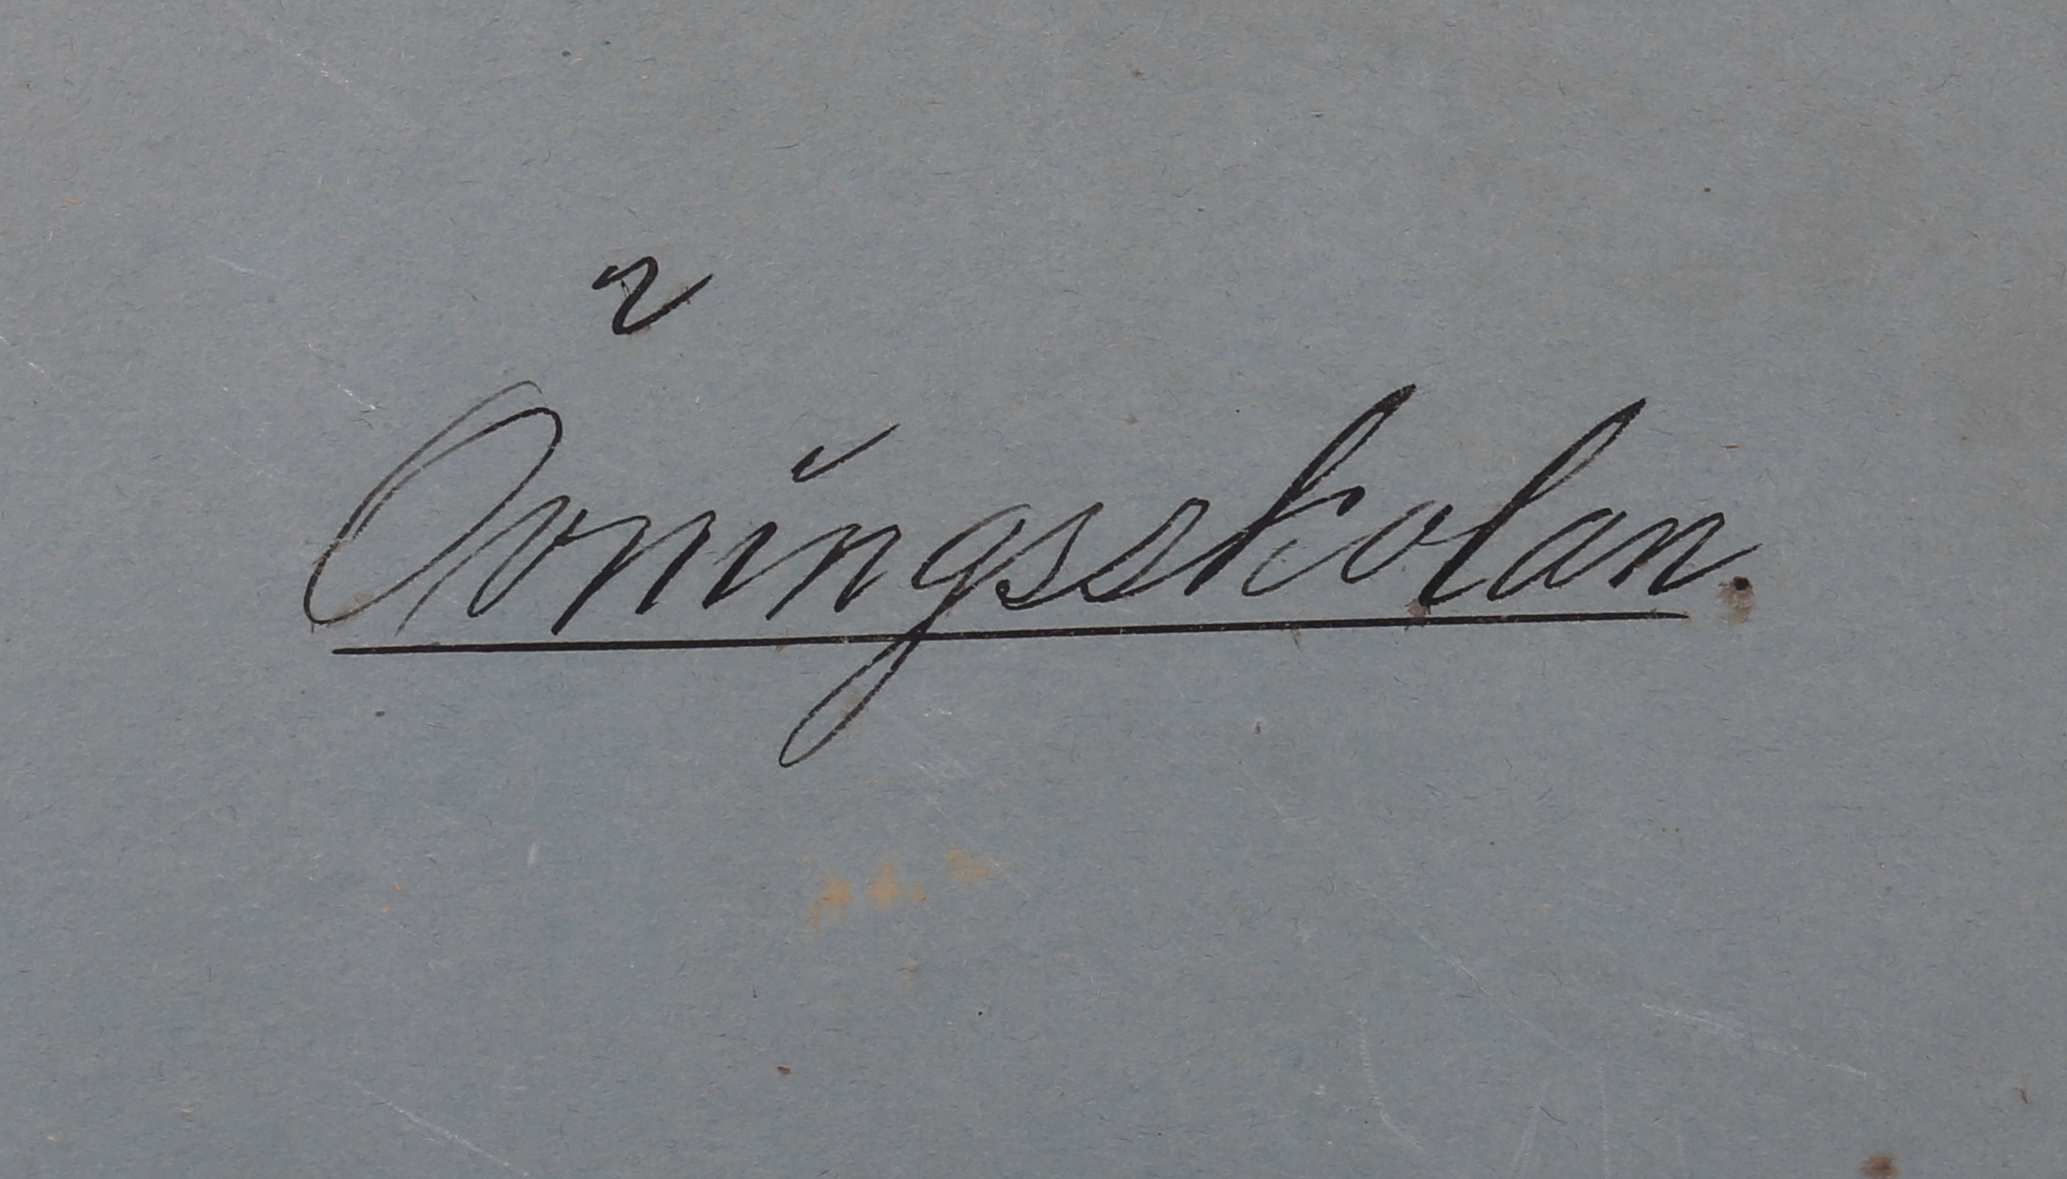 Övningsskolan.